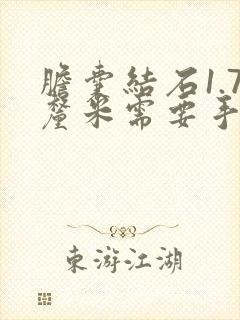 膽囊結石1.7
釐米需要手
東游江湖